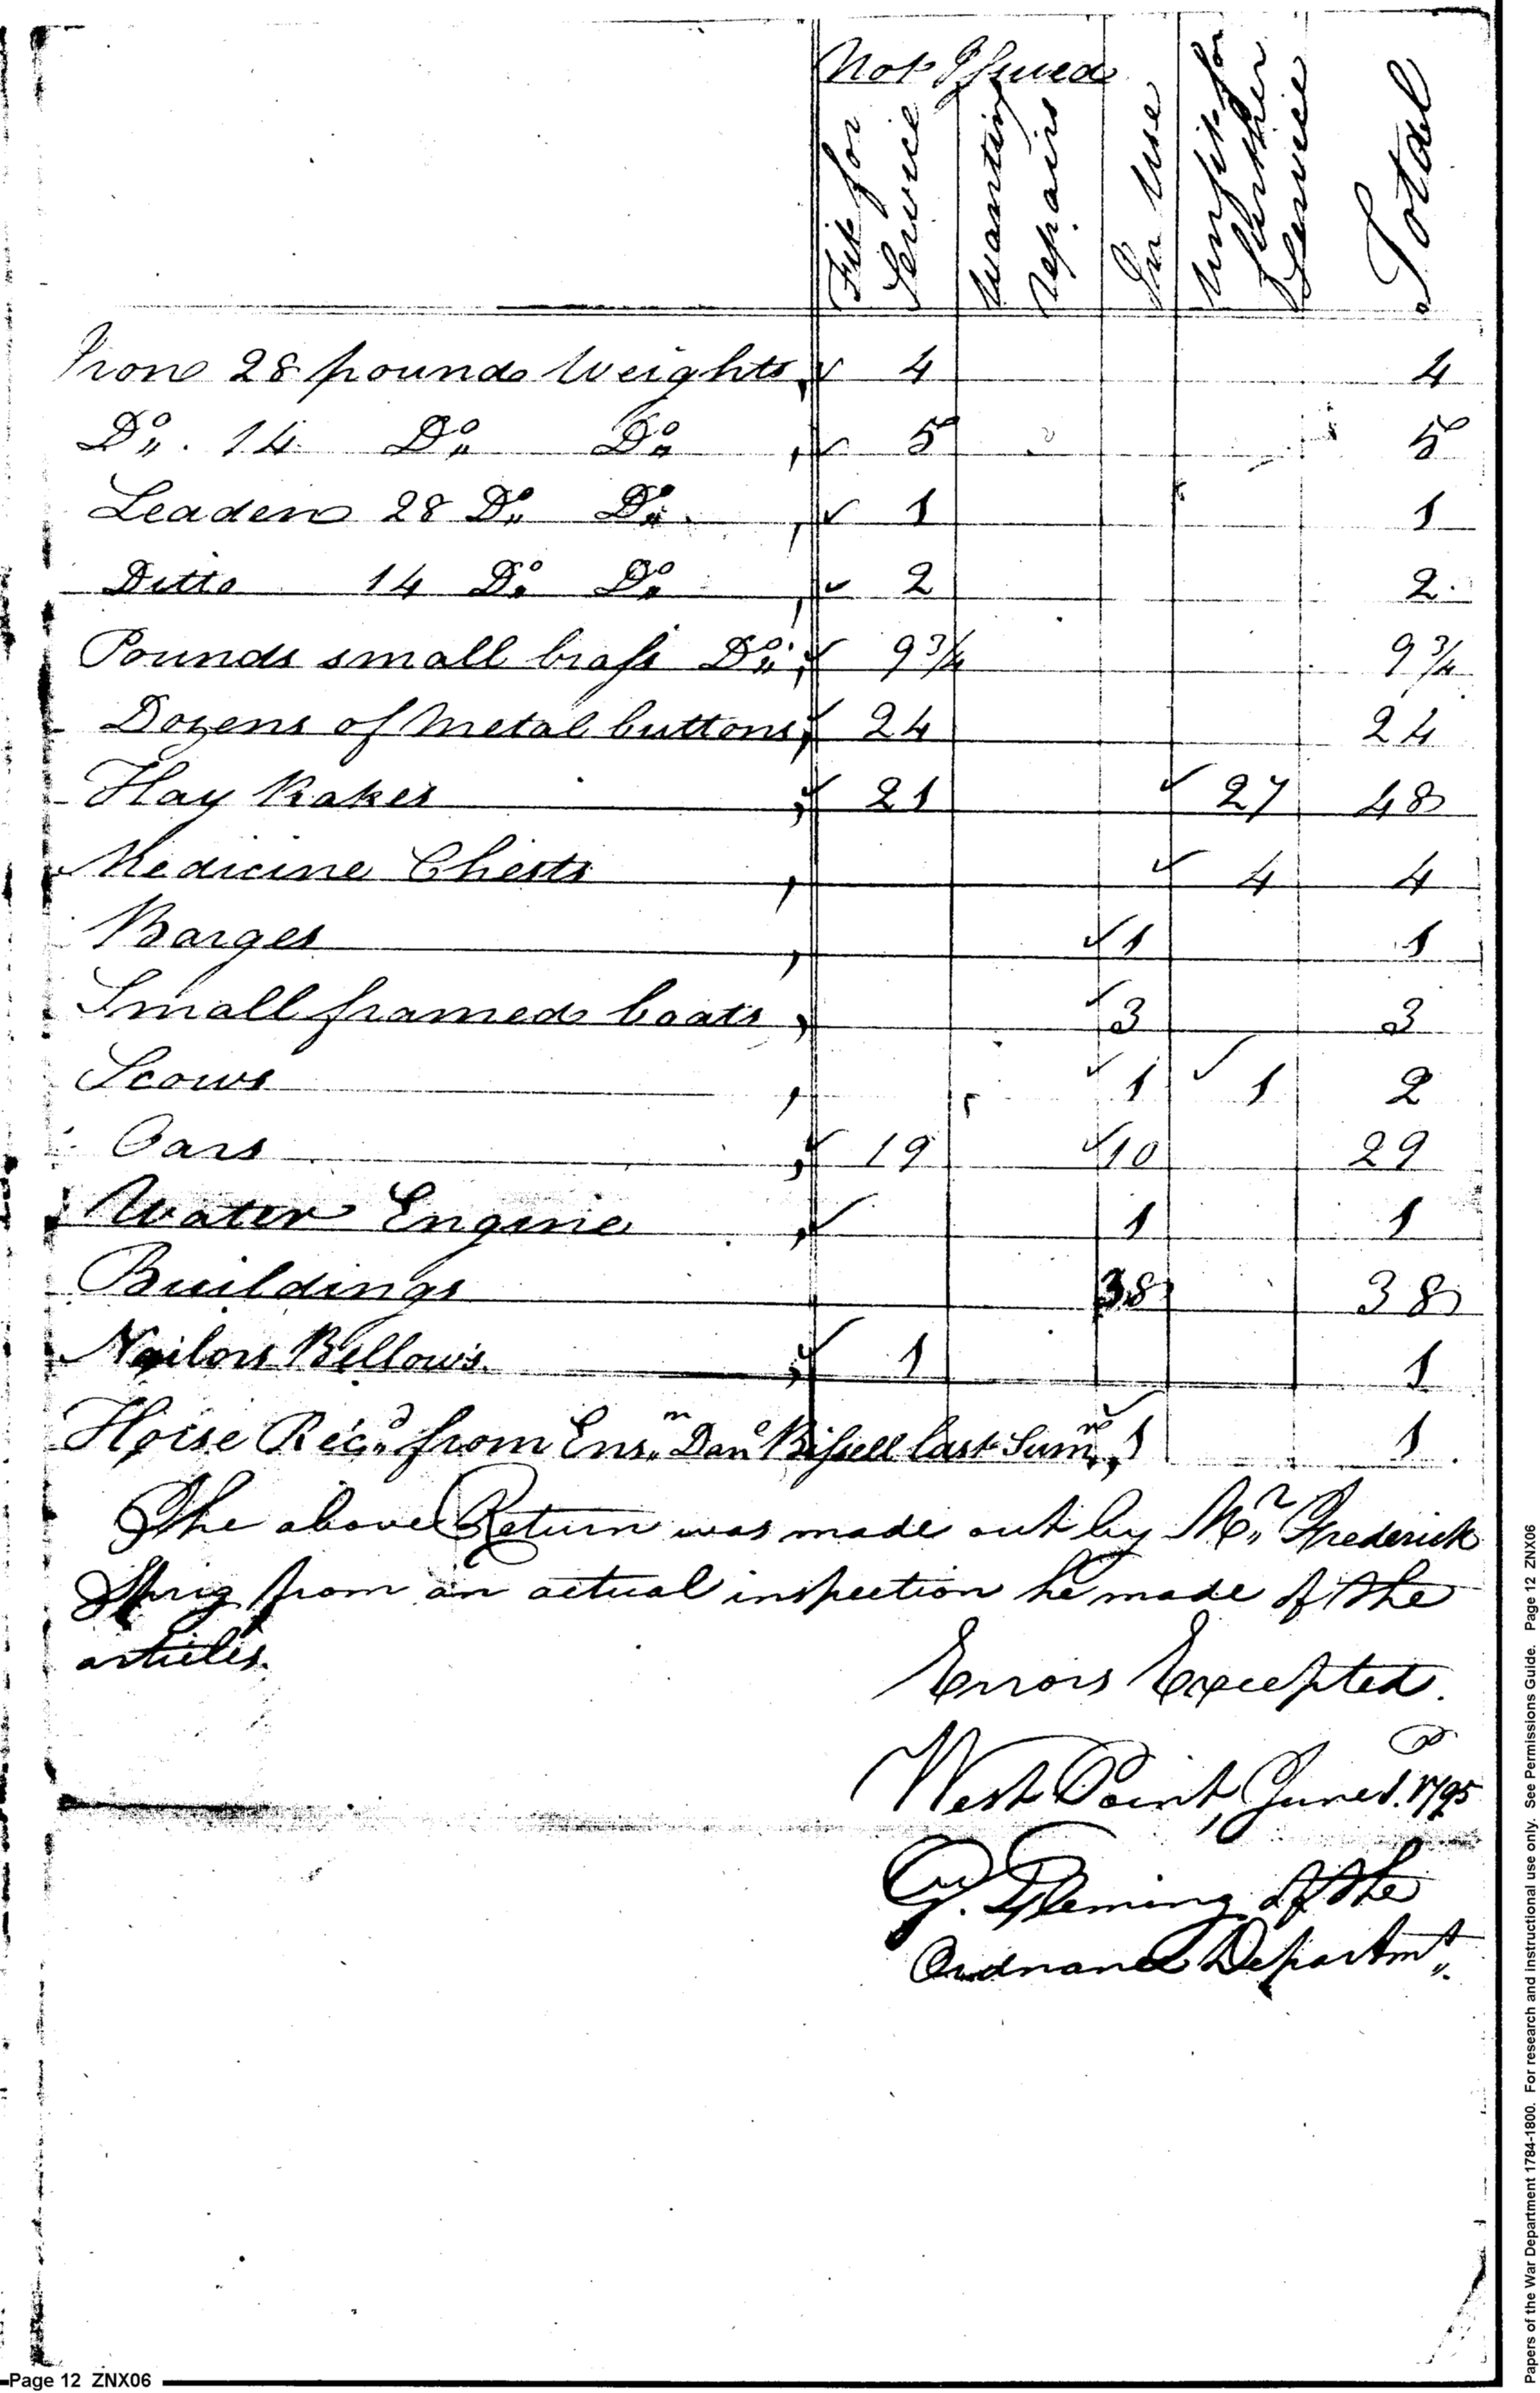 Not Issued
Fit for Service
Wanting repairs
In Use
Unfit for further Service
Total
Iron 28 pounds Weights, ✓ 4 4
Do,, . 14 Do,, Do,, , ✓ 5 5
Leaden 28 Do,, Do,, , ✓ 1 1
Ditto 14 Do,, Do,, , ✓ 2 2
Pounds small brass Do,, , ✓ 9 3/4 9 3/4
Dozens of Metal buttons, ✓ 24 24
Hay Rakes , ✓ 21 ✓ 27 48
Medicine Chests , ✓ 4 4
Barges , ✓ 1 1
Small framed boats , ✓ 3 3
Scows , ✓ 1 ✓ 1 2
Oars , ✓ 19 ✓ 10 29
Water Engine , ✓ 1 1
Buildings 38 38
Nailors Bellows , ✓ 1 1
Horse Rec,,d from Ens,,m Danl Bissell last Sum,,mr, ✓ 1 1
The above Return was made out by Mr,, Frederick
Sprig from an actual inspection he made of the
articles.
Errors Excepted.
West Point, June 1. 1795
G. Fleming of the
Ordnance Departmt,,.
Page 12 ZNX06
Papers of the War Department 1784-1800. For research and instructional use only. See Permissions Guide. Page 12 ZNX06